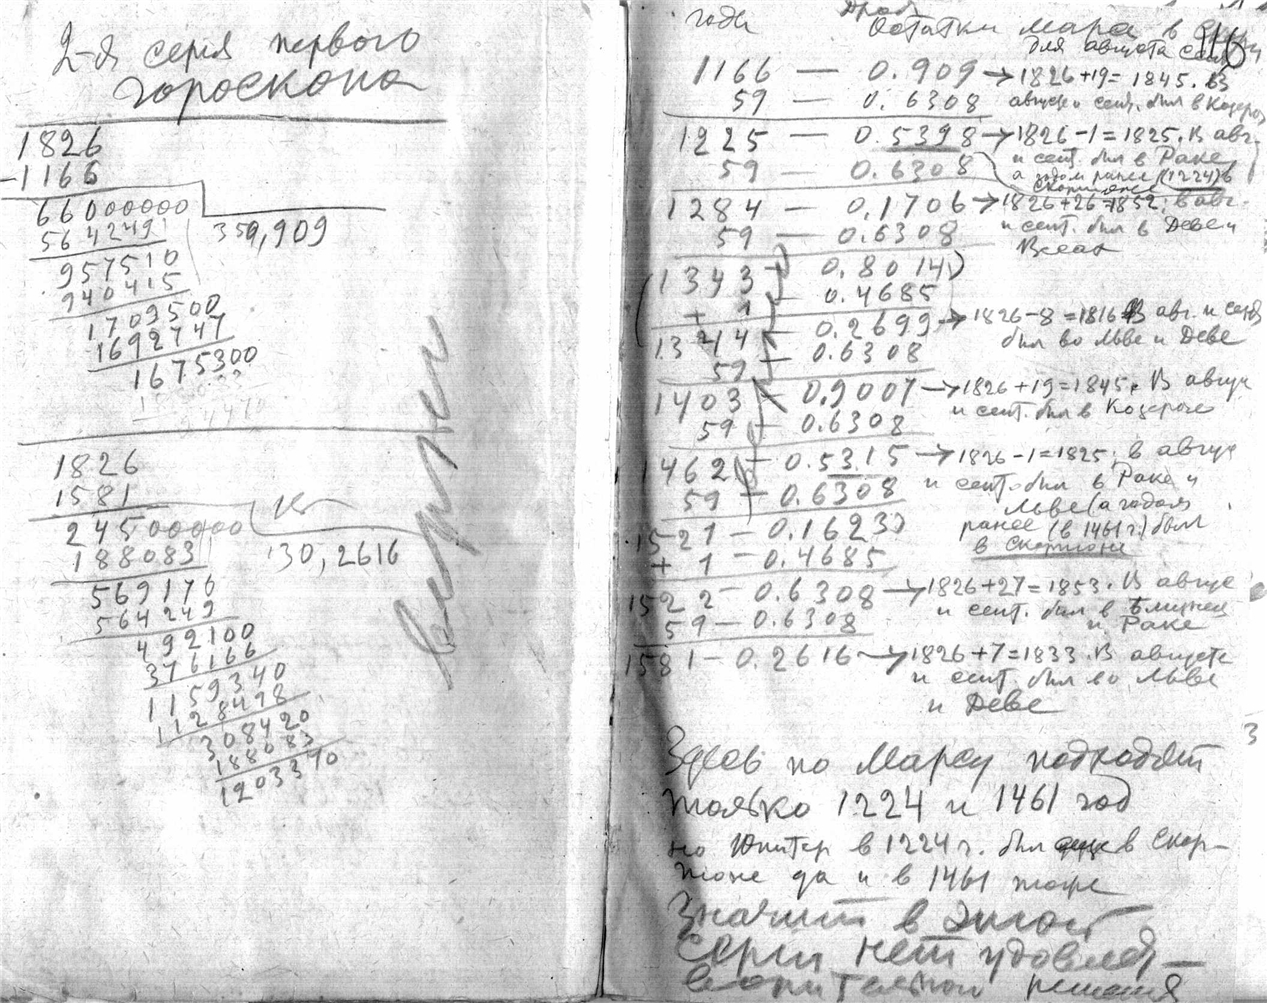 2-я серия первого
гороскопа
1826
-1166
66000000
564249
359,909
957510
940415
1709500
1692747
1675300
1826
1581
24500000
188083
130,2616
569170
564249
492100
376166
1159340
1128498
308420
188083
1203370
года
Остатки Марса в
для августа сент.
1166 — 0.909 → 1826+19=1845. В
59 — 0.6308 августе и сент. был в Козероге
1225 — 0.5398 → 1826-1=1825. В авг.
и сент. был в Раке,
59 — 0.6308 а годом ранее (1224) в
Скорпионе
1284 — 0.1706 → 1826+26=1852. В авг.
59 — 0.6308 и сент. был в Деве и
Весах
(1343 — 0.8014)
+ 1 — 0.4685
1344 — 0.2699 → 1826-8=1816 В авг. и сент.
59 — 0.6308 был во Льве и Деве
1403 — 0.9007 → 1826+19=1845. В августе
59 — 0.6308 и сент. был в Козероге
1462 — 0.5315 → 1826-1=1825. В августе
59 — 0.6308 и сент. был в Раке и
Льве (а годом
1521 — 0.1623) ранее (в 1461 г.) был
+ 1 — 0.4685 в Скорпионе
1522 — 0.6308 → 1826+27=1853. В августе
59 — 0.6308 и сент. был в Близнец
и Раке
1581 — 0.2616 → 1826+7=1833. В августе
и сент. был во Льве
и Деве
3
Здесь по Марсу подходят
только 1224 и 1461 год
но Юпитер в 1224 г. был в Скор-
пионе да и в 1461 тоже
Значит в этой
серии нет удовлет-
ворительного решения